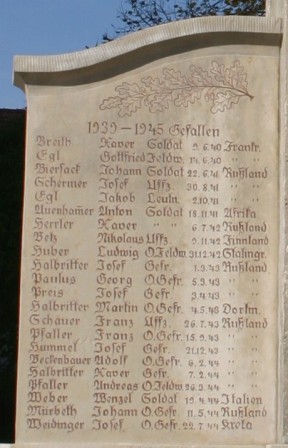 1939 – 1945 Gefallen
Breith Xaver Soldat 9.6.40 Frankr.
Egl Gottfried Feldw. 14.6.40 " "
Bierfack Johann Soldat 22.6.41 Rußland
Schermer Josef Uffz. 30.8.41 " "
Egl Jakob Leutn. 2.10.41 " "
Auenhamer Anton Soldat 18.11.41 Afrika
Herrler Xaver " " 6.7.42 Rußland
Betz Nikolaus Uffz. 9.11.42 Finnland
Huber Ludwig O.Feldw. 31.12.42 Stalingr.
Halbritter Josef Gefr. 1.9.43 Rußland
Paulus Georg O.Gefr. 5.9.43 " "
Preis Josef Gefr. 3.4.43 " "
Halbritter Martin O.Gefr. 14.5.43 Dortm.
Schauer Franz Uffz. 26.7.43 Rußland
Pfaller Franz O.Gefr. 15.9.43 " "
Hummel Josef Gefr. 21.12.43 " "
Beckenbauer Adolf O.Gefr. 6.2.44 " "
Halbritter Xaver Gefr. 7.2.44 " "
Pfaller Andreas O.Feldw. 26.3.44 " "
Weber Wenzel Soldat 19.4.44 Italien
Mürbeth Johann O.Gefr. 11.5.44 Rußland
Weidinger Josef O.Gefr. 22.7.44 Kreta